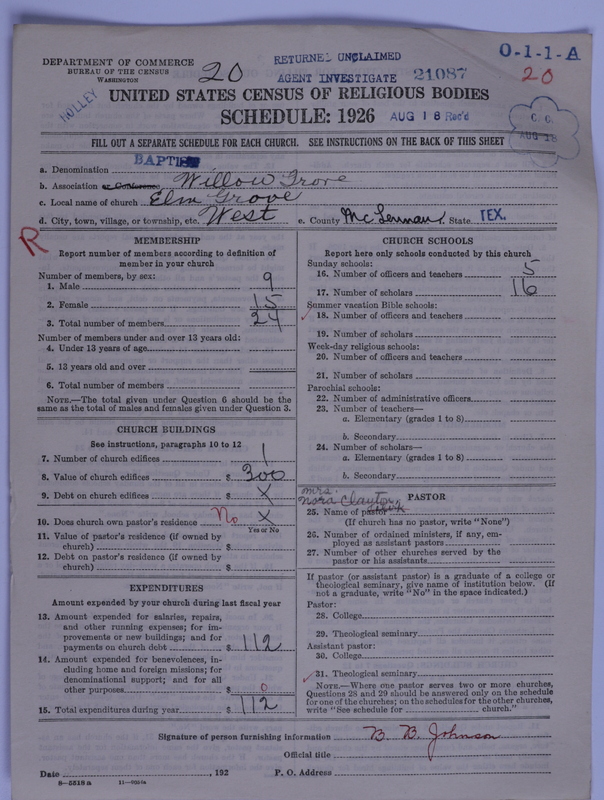 DEPARTMENT OF COMMERCE
BUREAU OF THE CENSUS
WASHINGTON
20
RETURNED UNCLAIMED
AGENT INVESTIGATE 21087
O-1-1-A
20
HOLLEY
UNITED STATES CENSUS OF RELIGIOUS BODIES
SCHEDULE: 1926 AUG 18 Rec'd
C. C.
AUG 18
FILL OUT A SEPARATE SCHEDULE FOR EACH CHURCH. SEE INSTRUCTIONS ON THE BACK OF THIS SHEET
a. Denomination BAPTIST
b. Association or Conference Willow Grove
c. Local name of church Elm Grove
d. City, town, village, or township, etc. West e. County McLennan State TEX.
R
MEMBERSHIP
Report number of members according to definition of
member in your church
Number of members, by sex:
1. Male 9
2. Female 15
3. Total number of members 24
Number of members under and over 13 years old:
4. Under 13 years of age
5. 13 years old and over
6. Total number of members
NOTE.—The total given under Question 6 should be the
same as the total of males and females given under Question 3.
CHURCH BUILDINGS
See instructions, paragraphs 10 to 12
7. Number of church edifices 1
8. Value of church edifices $ 300
9. Debt on church edifices $ X
10. Does church own pastor's residence No X
Yes or No
11. Value of pastor's residence (if owned by
church) $
12. Debt on pastor's residence (if owned by
church) $
EXPENDITURES
Amount expended by your church during last fiscal year
13. Amount expended for salaries, repairs,
and other running expenses; for im-
provements or new buildings; and for
payments on church debt $ 112
14. Amount expended for benevolences, in-
cluding home and foreign missions; for
denominational support; and for all
other purposes $ 0
15. Total expenditures during year $ 112
CHURCH SCHOOLS
Report here only schools conducted by this church
Sunday schools:
16. Number of officers and teachers 5
17. Number of scholars 16
Summer vacation Bible schools:
18. Number of officers and teachers
19. Number of scholars
Week-day religious schools:
20. Number of officers and teachers
21. Number of scholars
Parochial schools:
22. Number of administrative officers
23. Number of teachers—
a. Elementary (grades 1 to 8)
b. Secondary
24. Number of scholars—
a. Elementary (grades 1 to 8)
b. Secondary
PASTOR
Mrs.
Nora Clayton
25. Name of pastor Clerk
(If church has no pastor, write "None")
26. Number of ordained ministers, if any, em-
ployed as assistant pastors
27. Number of other churches served by the
pastor or his assistants
If pastor (or assistant pastor) is a graduate of a college or
theological seminary, give name of institution below. (If
not a graduate, write "No" in the space indicated.)
Pastor:
28. College
29. Theological seminary
Assistant pastor:
30. College
31. Theological seminary
NOTE.—Where one pastor serves two or more churches,
Questions 28 and 29 should be answered only on the schedule
for one of the churches; on the schedules for the other churches,
write "See schedule for church."
Signature of person furnishing information B. B. Johnson
Official title
Date , 192 P. O. Address
8—5318 a